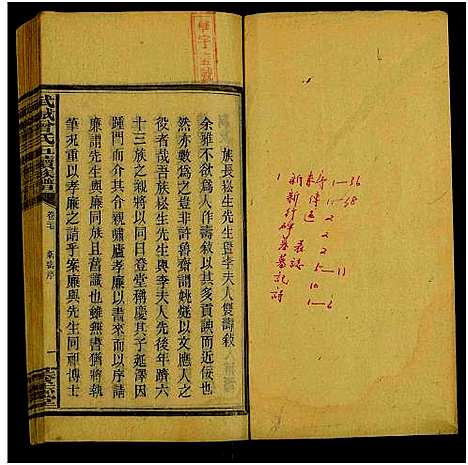 新增序 1—36
新傳 1—68
新行述 2
碑 2
墓表誌 5—11
墓記 10
詩 1—6
族長崧生先生曁李夫人雙壽敘
余雅不欲為人作壽敘以其多貢諛而近佞也
然亦數為之豈非許魯齋謂姚燧以文應人之
役者哉茲崧生先生與李夫人先後年躋六
十三族之親將以同日登堂稱慶其子延澤因
踵門而介其親嘯廬孝廉以書來而以序請
廉謂先生與廉同族且舊識也雖無書猶將執
筆況重以孝廉之請乎案廉與先生同祖博士
武城曾氏五續族譜
卷